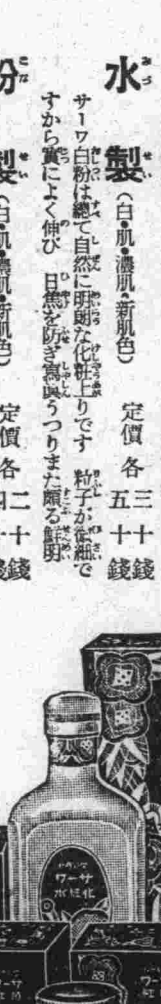 水製（白・肌・濃肌・新肌色）定價 各 三十錢 五十錢
サーワ白粉は總て自然に明朗な化粧上りです 粒子が微細で
すから實によく伸び 日焦を防ぎ寫眞うつりまた頗る鮮明
粉製（白・肌・濃肌・新肌色）定價 各 二十錢
サーワ
水粧化